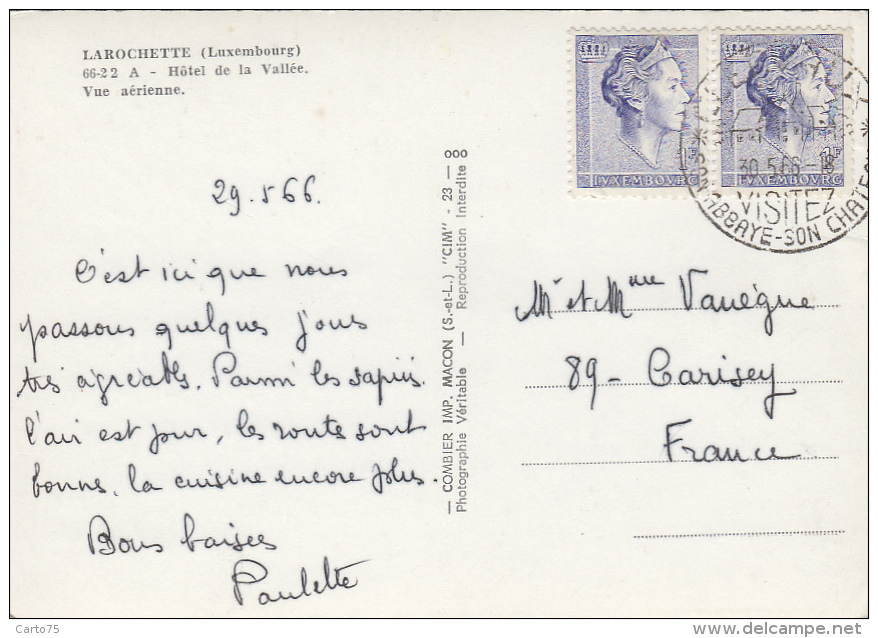 LAROCHETTE (Luxembourg)
66-22 A - Hôtel de la Vallée.
Vue aérienne.
29.5.66.
C'est ici que nous
passons quelques jours
très agréables. Parmi les sapins.
l'air est pur, les routes sont
bonnes, la cuisine encore plus.
Bons baisers
Paulette
— COMBIER IMP. MACON (S.-et-L.) "CIM" - 23 — 000
Photographie Véritable — Reproduction Interdite
LVXEMBOVRG
LVXEMBOVRG
30.5.66-18
VISITEZ
ABBAYE-SON CHATEAU
Mr et Mme Vauègne
89 - Carisey
France
Carto75
delcampe.net